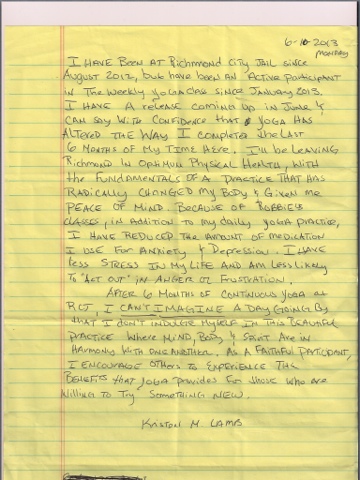 6-10-2013
MONDAY
I HAVE BEEN AT RICHMOND CITY JAIL SINCE
AUGUST 2012, but HAVE BEEN AN ACTIVE PARTICIPANT
IN THE WEEKLY YOGA CLASS SINCE JANUARY 2013.
I HAVE A RELEASE COMING UP IN JUNE &
CAN SAY WITH CONFIDENCE that YOGA HAS
ALTERED THE WAY I COMPLETE the LAST
6 MONTHS OF MY TIME HERE. I'll be LEAVING
RICHMOND IN OPTIMUM PHYSICAL HEALTH, WITH
the FUNDAMENTALS OF A PRACTICE THAT HAS
RADICALLY CHANGED MY BODY & GIVEN me
PEACE OF MIND. BECAUSE OF ROBBIE'S
CLASSES, IN ADDITION TO MY DAILY YOGA PRACTICE,
I HAVE REDUCED THE AMOUNT OF MEDICATION
I USE FOR ANXIETY & DEPRESSION. I HAVE
less STRESS IN MY LIFE AND AM LESS LIKELY
TO "ACT OUT" IN ANGER OR FRUSTRATION.
AFTER 6 MONTHS OF CONTINUOUS YOGA AT
RCJ, I CAN'T IMAGINE A DAY GOING BY
that I DON'T INDULGE MYSELF IN THIS BEAUTIFUL
PRACTICE WHERE MIND, BODY & SPIRIT ARE IN
HARMONY WITH ONE ANOTHER. AS A FAITHFUL PARTICIPANT,
I ENCOURAGE OTHERS TO EXPERIENCE THE
BENEFITS that YOGA PROVIDES FOR THOSE WHO ARE
WILLING TO TRY SOMETHING NEW.
KRISTON M. LAMB